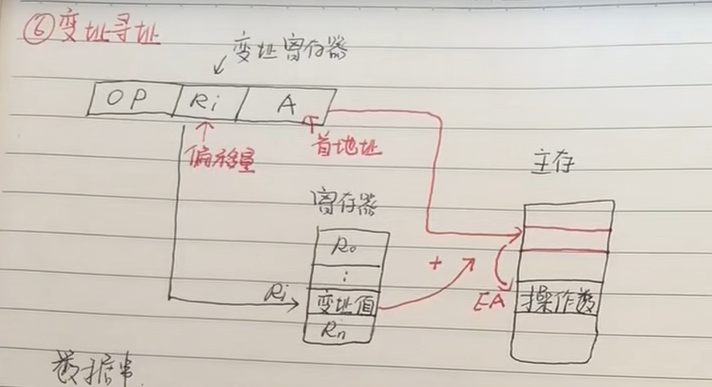 ⑥变址寻址
变址寄存器
OP Ri A
偏移量
首地址
主存
寄存器
R₀
⋮
+
Ri
变址值
EA
操作数
Rn
数据串